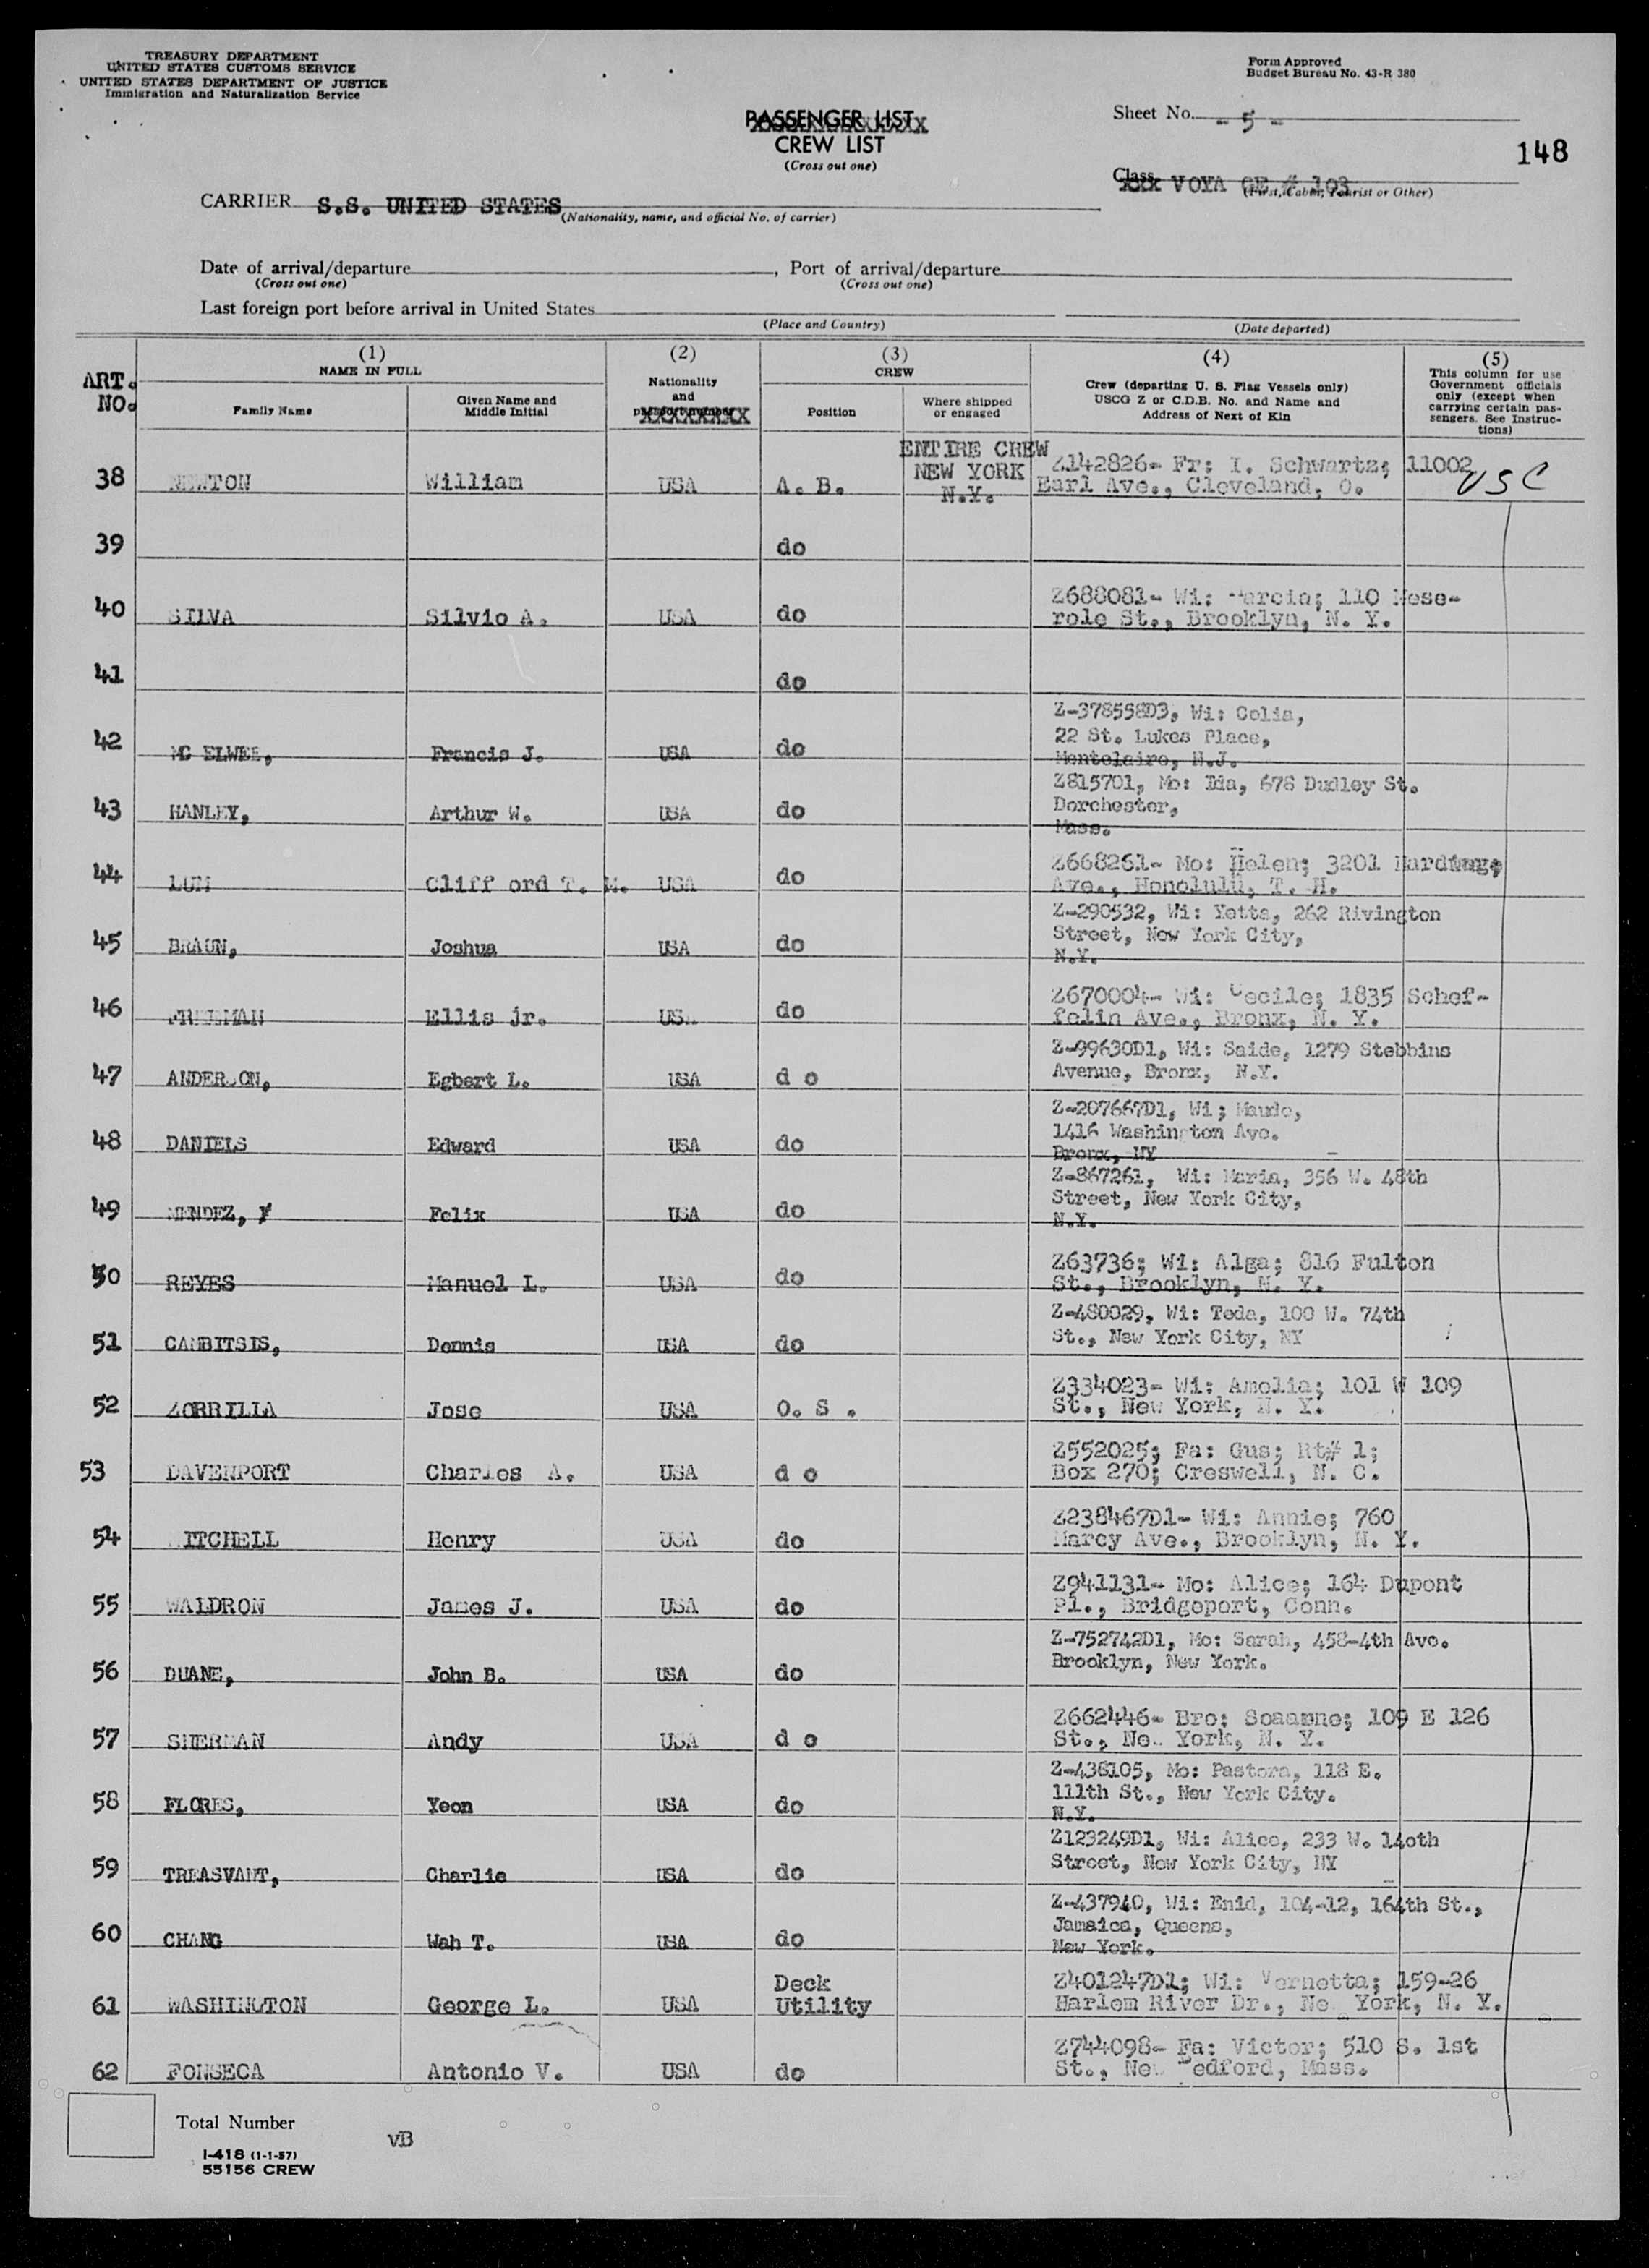 TREASURY DEPARTMENT
UNITED STATES CUSTOMS SERVICE
UNITED STATES DEPARTMENT OF JUSTICE
Immigration and Naturalization Service
Form Approved
Budget Bureau No. 43-R 380
PASSENGER LIST
CREW LIST
(Cross out one)
Sheet No. - 5 -
148
Class VOYA GE # 103
(First, Cabin, Tourist or Other)
CARRIER S.S. UNITED STATES
(Nationality, name, and official No. of carrier)
Date of arrival/departure , Port of arrival/departure
(Cross out one) (Cross out one)
Last foreign port before arrival in United States
(Place and Country) (Date departed)
ART. NO.
(1) NAME IN FULL
Family Name
Given Name and Middle Initial
(2) Nationality and passport number
(3) CREW
Position
Where shipped or engaged
(4) Crew (departing U. S. Flag Vessels only) USCG Z or C.D.B. No. and Name and Address of Next of Kin
(5) This column for use Government officials only (except when carrying certain passengers. See Instructions)
ENTIRE CREW
NEW YORK
N.Y.
38 NEWTON William USA A. B. Z142826- Fr: I. Schwartz; 11002
Earl Ave., Cleveland, O.
USC
39 do
40 SILVA Silvio A. USA do Z688081- Wi: 110 Mese-
role St., Brooklyn, N. Y.
41 do
42 MC ELWEE, Francis J. USA do Z-378558D3, Wi: Celia,
22 St. Lukes Place,
Montclaire, N.J.
43 HANLEY, Arthur W. USA do Z815701, Mo: Ida, 678 Dudley St.
Dorchester,
Mass.
44 LUM Cliff ord T. M. USA do Z668261- Mo: Helen; 3201
Ave., Honolulu, T. H.
45 BRAUN, Joshua USA do Z-290532, Wi: Yetta, 262 Rivington
Street, New York City,
N.Y.
46 FREEMAN Ellis jr. USA do Z670004- Wi: Cecile; 1835 Schef-
felin Ave., Bronx, N. Y.
47 ANDERSON, Egbert L. USA d o Z-99630D1, Wi: Saide, 1279 Stebbins
Avenue, Bronx, N.Y.
48 DANIELS Edward USA do Z-207667D1, Wi; Maude,
1416 Washington Ave.
Bronx, NY
49 MENDEZ, Felix USA do Z-867261, Wi: Maria, 356 W. 48th
Street, New York City,
N.Y.
50 REYES Manuel L. USA do Z63736; Wi: Alga; 816 Fulton
St., Brooklyn, N. Y.
51 CAMBITSIS, Dennis USA do Z-480029, Wi: Teda, 100 W. 74th
St., New York City, NY
52 ZORRILLA Jose USA O. S . Z334023- Wi: Amelia; 101 W 109
St., New York, N. Y.
53 DAVENPORT Charles A. USA d o Z552025; Fa: Gus; Rt# 1;
Box 270; Creswell, N. C.
54 MITCHELL Henry USA do Z238467D1- Wi: Annie; 760
Marcy Ave., Brooklyn, N. Y.
55 WALDRON James J. USA do Z941131- Mo: Alice; 164 Dupont
Pl., Bridgeport, Conn.
56 DUANE, John B. USA do Z-752742D1, Mo: Sarah, 458-4th Ave.
Brooklyn, New York.
57 SHERMAN Andy USA d o Z662446- Bro: 109 E 126
St., New York, N. Y.
58 FLORES, Yeon USA do Z-436105, Mo: Pastora, 118 E.
111th St., New York City.
N.Y.
59 TREASVANT, Charlie USA do Z123249D1, Wi: Alice, 233 W. 140th
Street, New York City, NY
60 CHANG Wah T. USA do Z-437940, Wi: Enid, 104-12, 164th St.,
Jamaica, Queens,
New York.
61 WASHINGTON George L. USA Deck Utility Z401247D1; Wi: Vernetta; 159-26
Harlem River Dr., New York, N. Y.
62 FONSECA Antonio V. USA do Z744098- Fa: Victor; 510 S. 1st
St., New Bedford, Mass.
Total Number
vB
I-418 (1-1-57)
55156 CREW